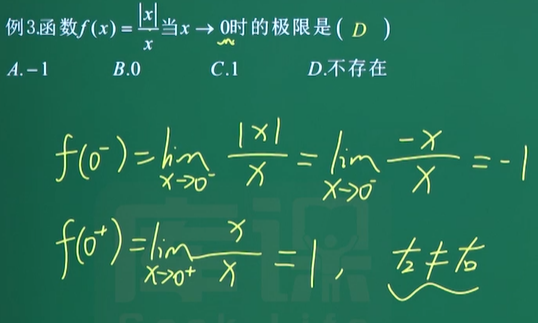 例3.函数f(x)=|x|/x当x→0时的极限是( D )
A.-1 B.0 C.1 D.不存在
f(0⁻)=lim x→0⁻ |x|/x=lim x→0⁻ -x/x=-1
f(0⁺)=lim x→0⁺ x/x=1, 左≠右
库课